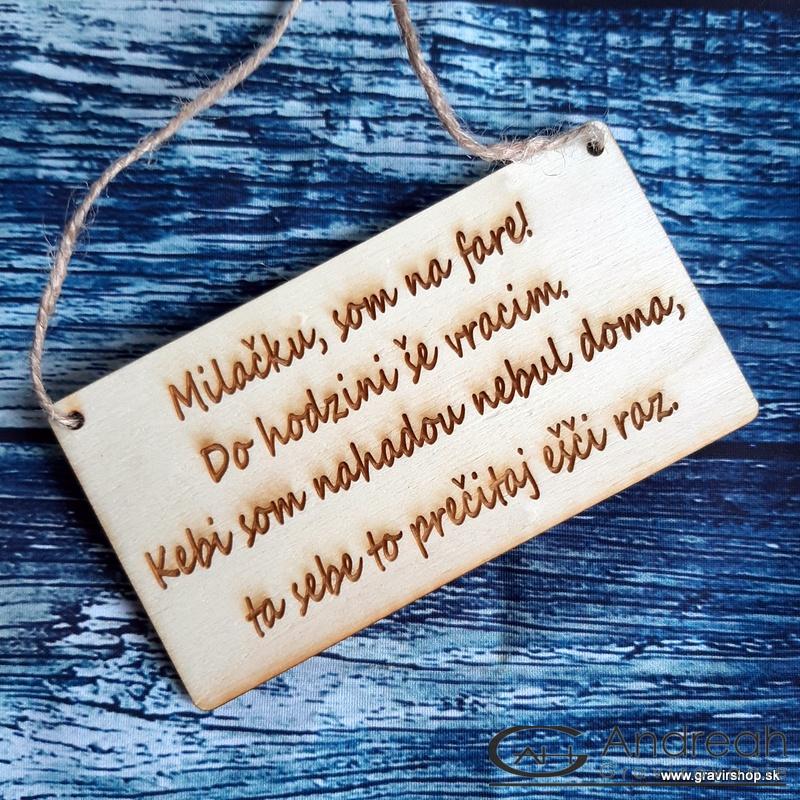 Milačku, som na fare!
Do hodzini še vracim.
Kebi som nahadou nebul doma,
ta sebe to prečitaj ešči raz.
Andreah
www.gravirshop.sk